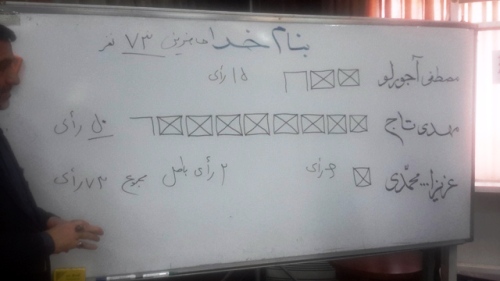 بنام خدا حاضرین ۷۳ نفر
مصطفی آجورلو ۱۵ رأی
مهدی تاج ۵۰ رأی
عزیزا... محمّدی ۶ رأی ۲ رأی باطل مجموع ۷۳ رأی